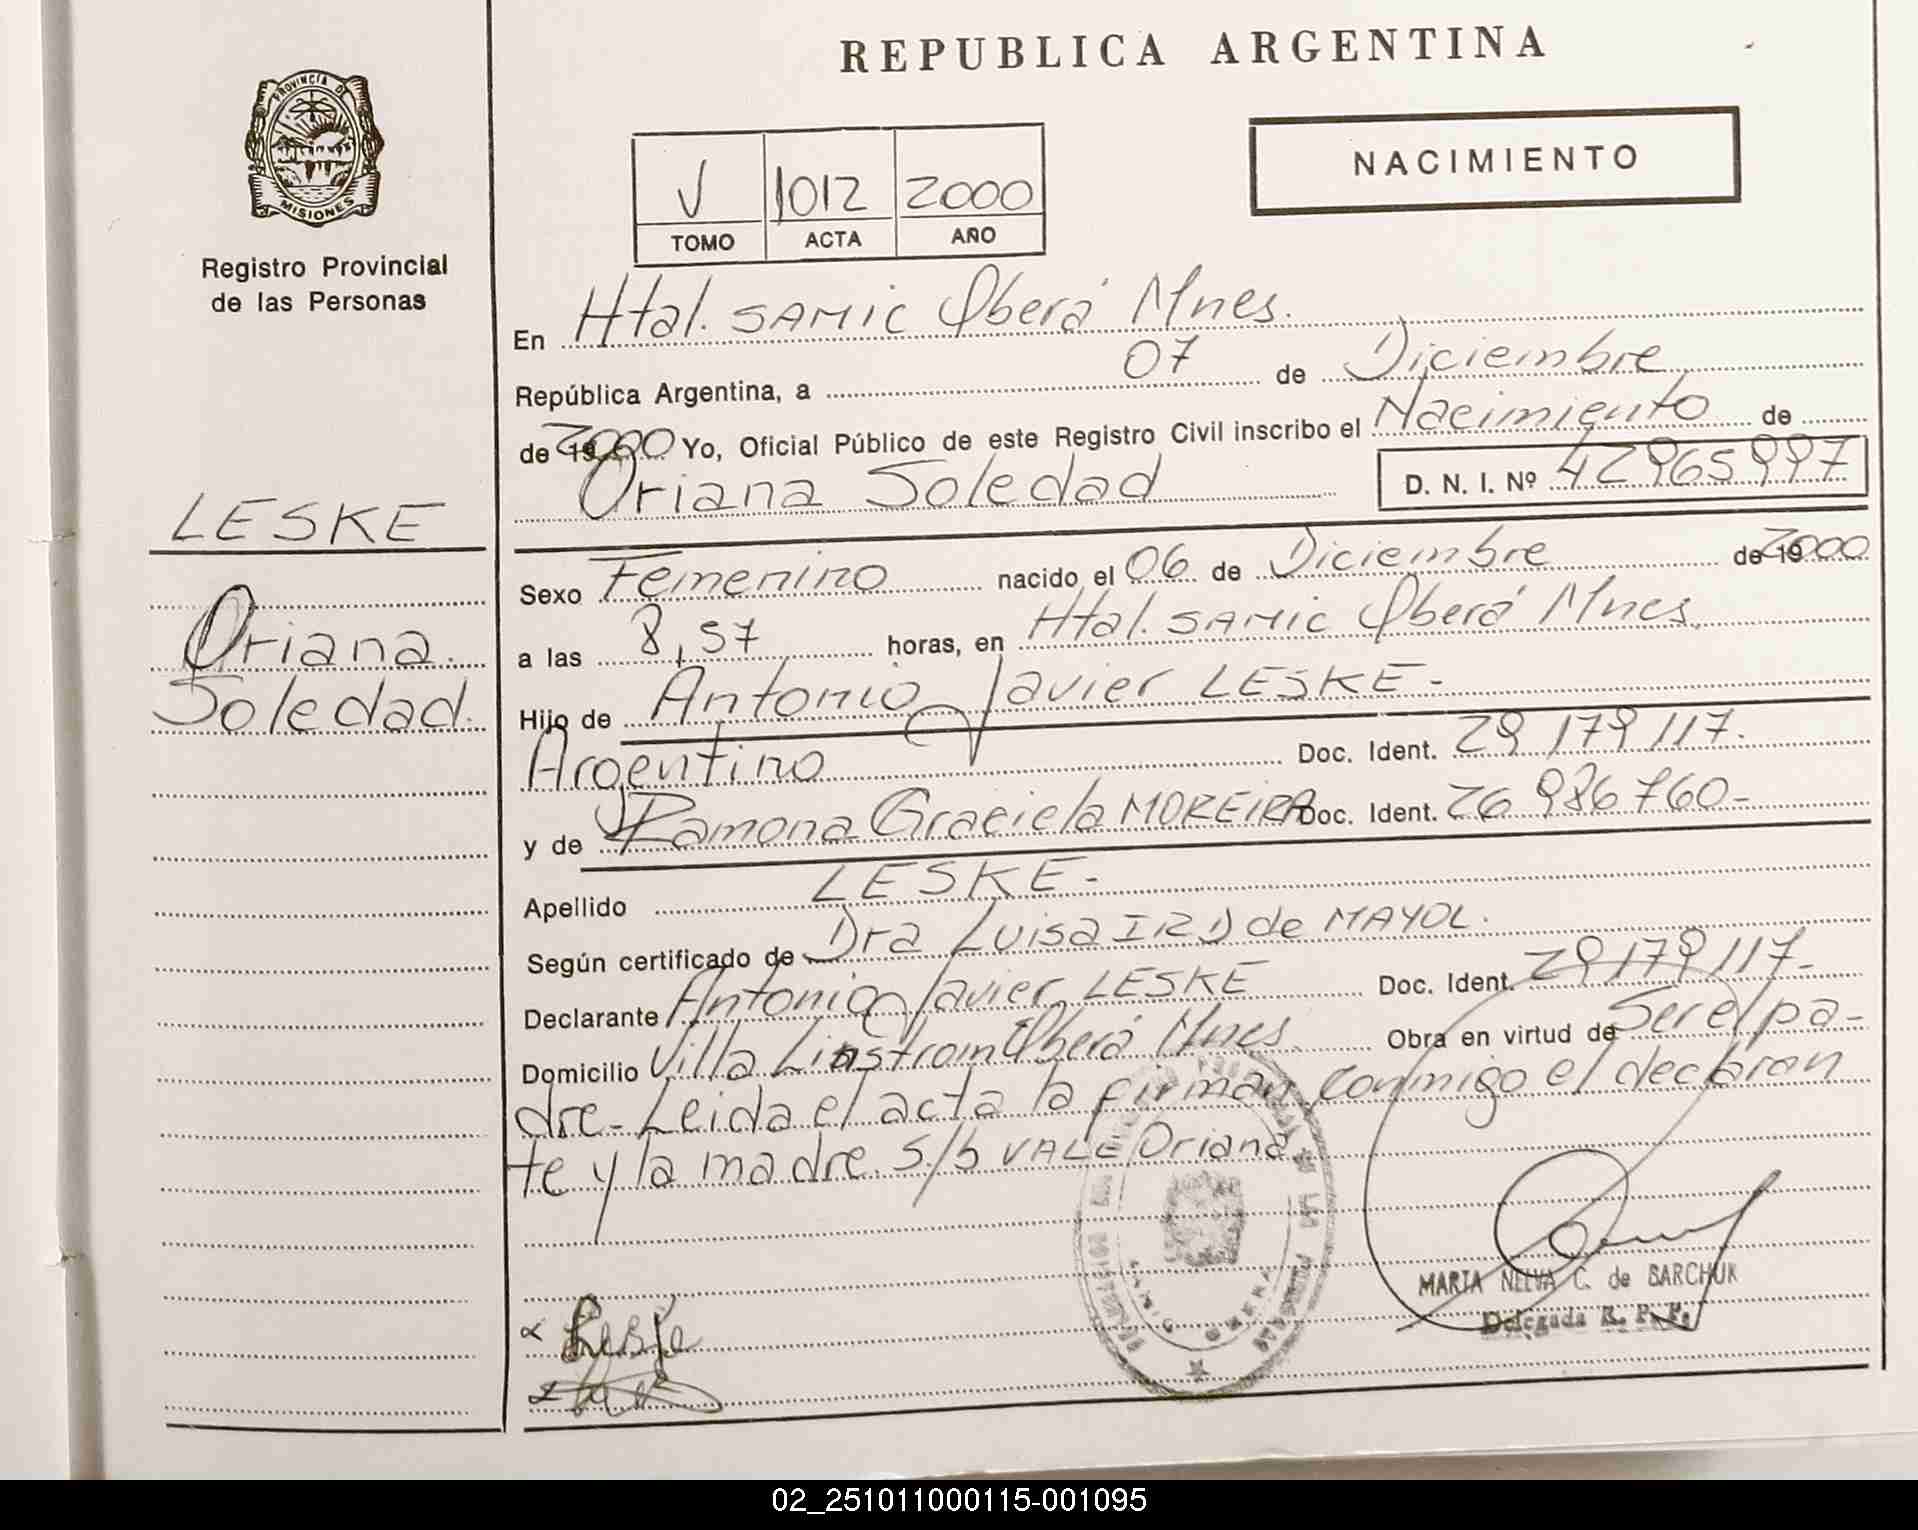 REPUBLICA ARGENTINA
PROVINCIA DE
MISIONES
Registro Provincial
de las Personas
NACIMIENTO
V 1012 2000
TOMO ACTA AÑO
En Htal. SAMIC Oberá Mnes.
República Argentina, a 07 de Diciembre
de 19 2000 Yo, Oficial Público de este Registro Civil inscribo el Nacimiento de
Oriana Soledad D. N. I. Nº 42965997
LESKE
Oriana
Soledad.
Sexo Femenino nacido el 06 de Diciembre de 19 2000
a las 8,57 horas, en Htal. SAMIC Oberá Mnes.
Hijo de Antonio Javier LESKE -
Argentino Doc. Ident. 29 179 117.
y de Ramona Graciela MOREIRA Doc. Ident. 26 986 760-
Apellido LESKE -
Según certificado de Dra Luisa de MAYOL.
Declarante Antonio Javier LESKE Doc. Ident. 29 179 117-
Domicilio Villa Linstrom Oberá Mnes. Obra en virtud de Ser el pa-
dre- Leida el acta la firman conmigo el declaran
te y la madre. S/b VALE Oriana.
MARIA NELVA C. de SARCHUK
Delegada R. P. P.
02_251011000115-001095